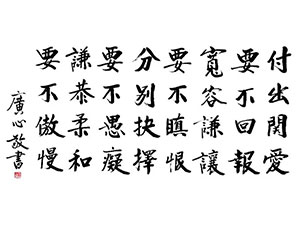 付出關愛
要不回報
寬容謙讓
要不瞋恨
分別抉擇
要不愚癡
謙恭柔和
要不傲慢
廣心敬書